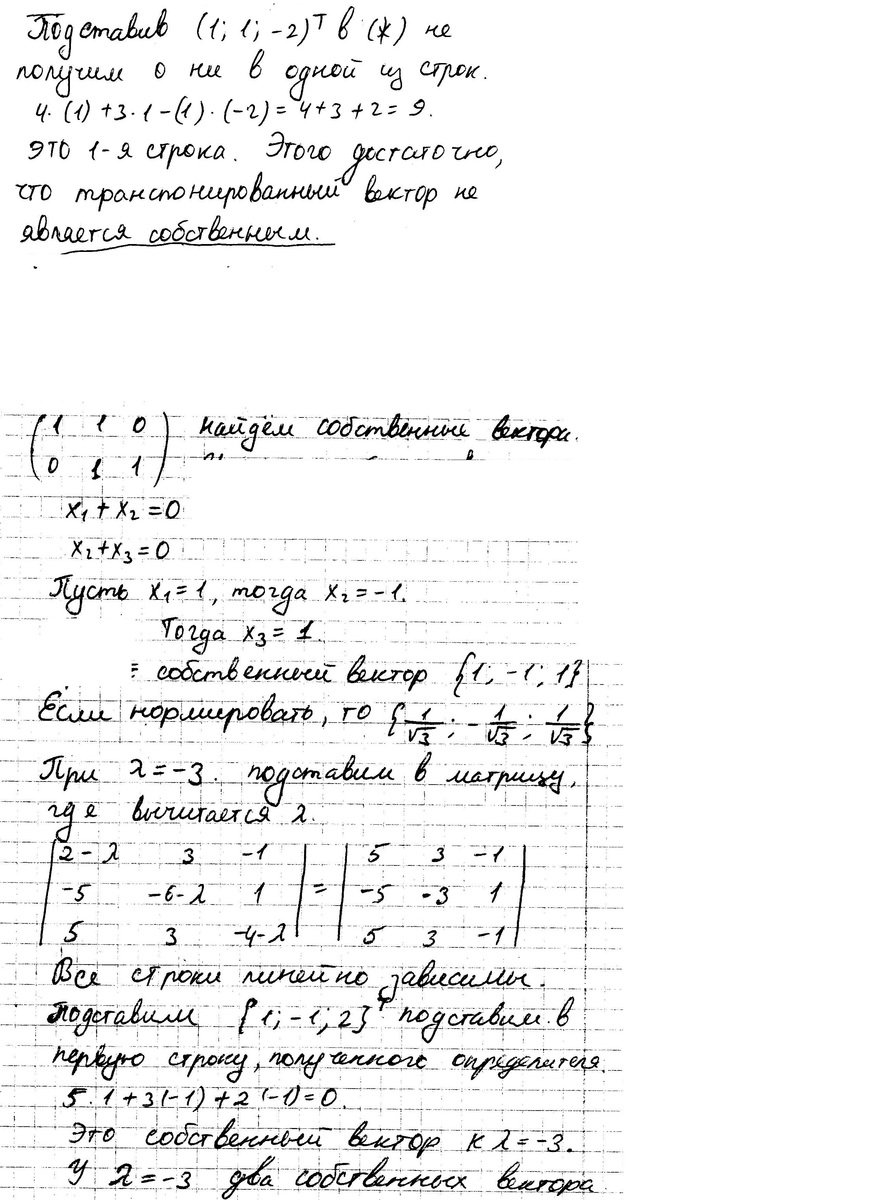 Подставив (1; 1; -2)ᵀ в (*) не
получим 0 ни в одной из строк.
4·(1)+3·1-(1)·(-2)=4+3+2=9.
это 1-я строка. Этого достаточно,
что транспонированный вектор не
является собственным.
(1 1 0) найдём собственные вектора.
(0 1 1)
x₁+x₂=0
x₂+x₃=0
Пусть x₁=1, тогда x₂=-1.
Тогда x₃=1.
собственный вектор {1; -1; 1}
Если нормировать, то {1/√3; -1/√3; 1/√3}
При λ=-3. подставим в матрицу,
где вычитается λ.
|2-λ 3 -1| |5 3 -1|
|-5 -6-λ 1| = |-5 -3 1|
|5 3 -4-λ| |5 3 -1|
Все строки линейно зависимы.
Подставим {1; -1; 2}ᵀ подставим в
первую строку, полученного определителя.
5·1+3(-1)+2(-1)=0.
Это собственный вектор к λ=-3.
У λ=-3 два собственных вектора